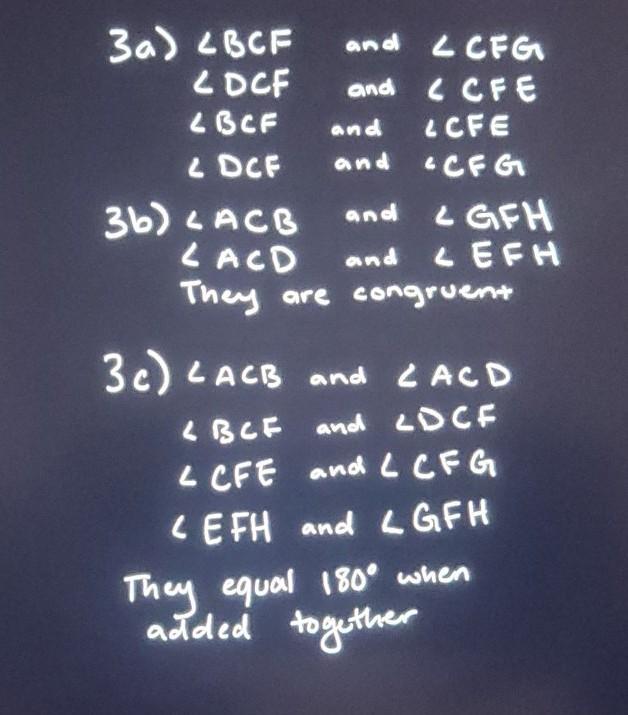 3a) ∠BCF and ∠CFG
∠DCF and ∠CFE
∠BCF and ∠CFE
∠DCF and ∠CFG
3b) ∠ACB and ∠GFH
∠ACD and ∠EFH
They are congruent
3c) ∠ACB and ∠ACD
∠BCF and ∠DCF
∠CFE and ∠CFG
∠EFH and ∠GFH
They equal 180° when
added together